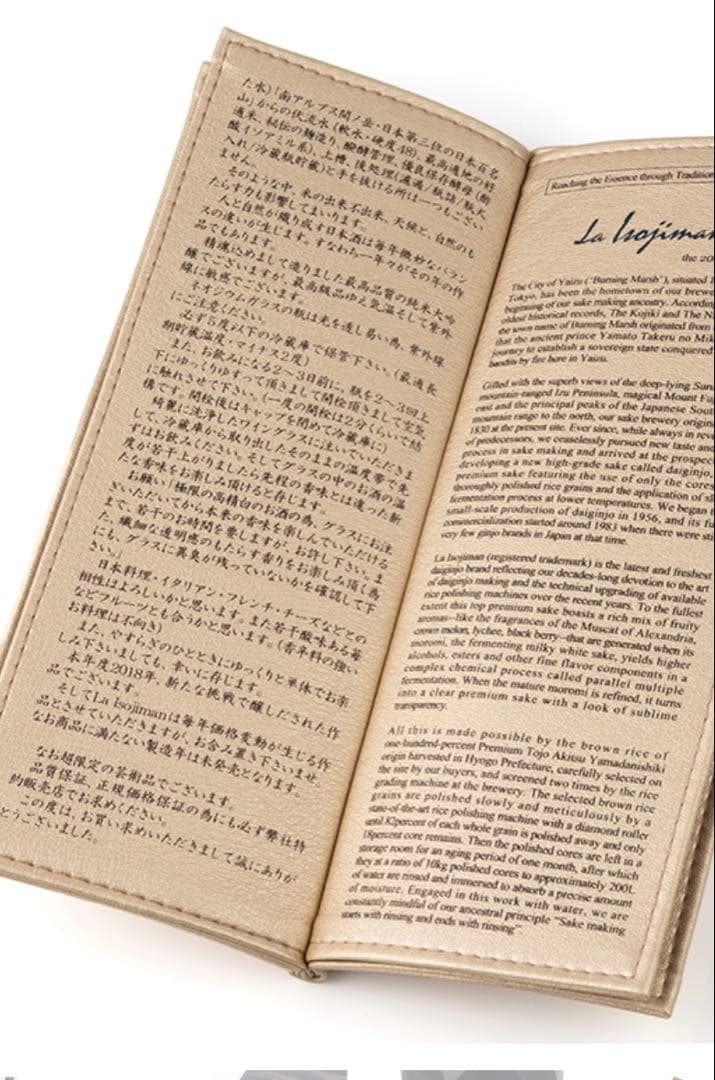 た水)「南アルプス間ノ岳・日本第三位の日本百名
山」からの伏流水(軟水・硬度48)、最高適地の好
適米、秘伝の麹造り、醗酵管理、優良保存酵母(酢
酸イソアミル系)、上槽、後処理(濾過/瓶詰/瓶火
入れ/冷蔵瓶貯蔵)と手を抜ける所は一つもござい
ません。
そのような中、米の出来不出来、天候と、自然のも
たらす力も影響してまいります。
人と自然が織り成す日本酒は毎年微妙なバラン
スの違いが生じます。すなわち一年々がその年の作
品でもあります。
精魂込めまして造りました最高品質の純米大吟
醸でございますが、最高級品ゆえ気温そして紫外
線に敏感でございます。
ネオジウムグラスの瓶は光を透し易い為、紫外線
にご注意ください。
必ず5度以下の冷蔵庫で保管下さい。(最適長
期貯蔵温度・マイナス2度)
また、お飲みになる2〜3日前に、瓶を2〜3回上
下にゆっくりゆすって頂きまして開栓頂きまして空気
に触れさせて下さい。(一度の開栓は2分くらいで結
構です。開栓後はキャップを閉めて冷蔵庫に)
綺麗に洗浄したワイングラスに注いでいただきま
して、冷蔵庫から取り出したそのままの温度帯で先
ずはお飲みください。そしてグラスの中のお酒の温
度が若干上がりましたら先程の香味とは違った新
たな香味をお楽しみ頂けると存じます。
お願い「極限の高精白のお酒の為、グラスにお注
ぎいただいてから本来の香味を楽しんでいただける
まで、若干のお時間を要しますが、お許し下さい。ま
た、繊細な透明感のもたらす香りをお楽しみ頂く為
にも、グラスに異臭が残っていないかを確認して下
さい。」
日本料理・イタリアン・フレンチ・チーズなどとの
相性はよろしいかと思います。また若干酸味ある苺
などフルーツとも合うかと思います。(香辛料の強い
お料理は不向き)
また、やすらぎのひとときにゆっくりと単体でお楽
しみ下さいましても、幸いに存じます。
本年度2018年、新たな挑戦で醸しだされた作
品でございます。
そしてLa Isojimanは毎年価格変動が生じる作
品とさせていただきますが、お含み置き下さいませ。
なお商品に満たない製造年は未発売となります。
なお超限定の芸術品でございます。
品質保証、正規価格保証の為にも必ず弊社特
約販売店でお求めください。
この度は、お買い求めいただきまして誠にありが
とうございました。
Reaching the Essence through Tradition
La Isojiman
the 20
The City of Yaizu ('Burning Marsh'), situated
Tokyo, has been the hometown of our brewe
beginning of our sake making ancestry. According
oldest historical records, The Kojiki and The N
the town name of Burning Marsh originated from
that the ancient prince Yamato Takeru no Mik
journey to establish a sovereign state conquered
bandits by fire here in Yaizu.
Gifted with the superb views of the deep-lying Suru
mountain-ranged Izu Peninsula, magical Mount Fuj
east and the principal peaks of the Japanese South
mountain range to the north, our sake brewery origin
1830 at the present site. Ever since, while always in reve
of predecessors, we ceaselessly pursued new taste and
process in sake making and arrived at the prospec
developing a new high-grade sake called daiginjo,
premium sake featuring the use of only the cores
thoroughly polished rice grains and the application of sl
fermentation process at lower temperatures. We began t
small-scale production of daiginjo in 1956, and its fu
commercialization started around 1983 when there were sti
very few ginjo brands in Japan at that time.
La Isojiman (registered trademark) is the latest and freshest
daiginjo brand reflecting our decades-long devotion to the art
of daiginjo making and the technical upgrading of available
rice polishing machines over the recent years. To the fullest
extent this top premium sake boasts a rich mix of fruity
aromas--like the fragrances of the Muscat of Alexandria,
crown melon, lychee, black berry--that are generated when its
moromi, the fermenting milky white sake, yields higher
alcohols, esters and other fine flavor components in a
complex chemical process called parallel multiple
fermentation. When the mature moromi is refined, it turns
into a clear premium sake with a look of sublime
transparency.
All this is made possible by the brown rice of
one-hundred-percent Premium Tojo Akitsu Yamadanishiki
origin harvested in Hyogo Prefecture, carefully selected on
the site by our buyers, and screened two times by the rice
grading machine at the brewery. The selected brown rice
grains are polished slowly and meticulously by a
state-of-the-art rice polishing machine with a diamond roller
until 82percent of each whole grain is polished away and only
18percent core remains. Then the polished cores are left in a
storage room for an aging period of one month, after which
they at a ratio of 10kg polished cores to approximately 200L
of water are rinsed and immersed to absorb a precise amount
of moisture. Engaged in this work with water, we are
constantly mindful of our ancestral principle "Sake making
starts with rinsing and ends with rinsing"